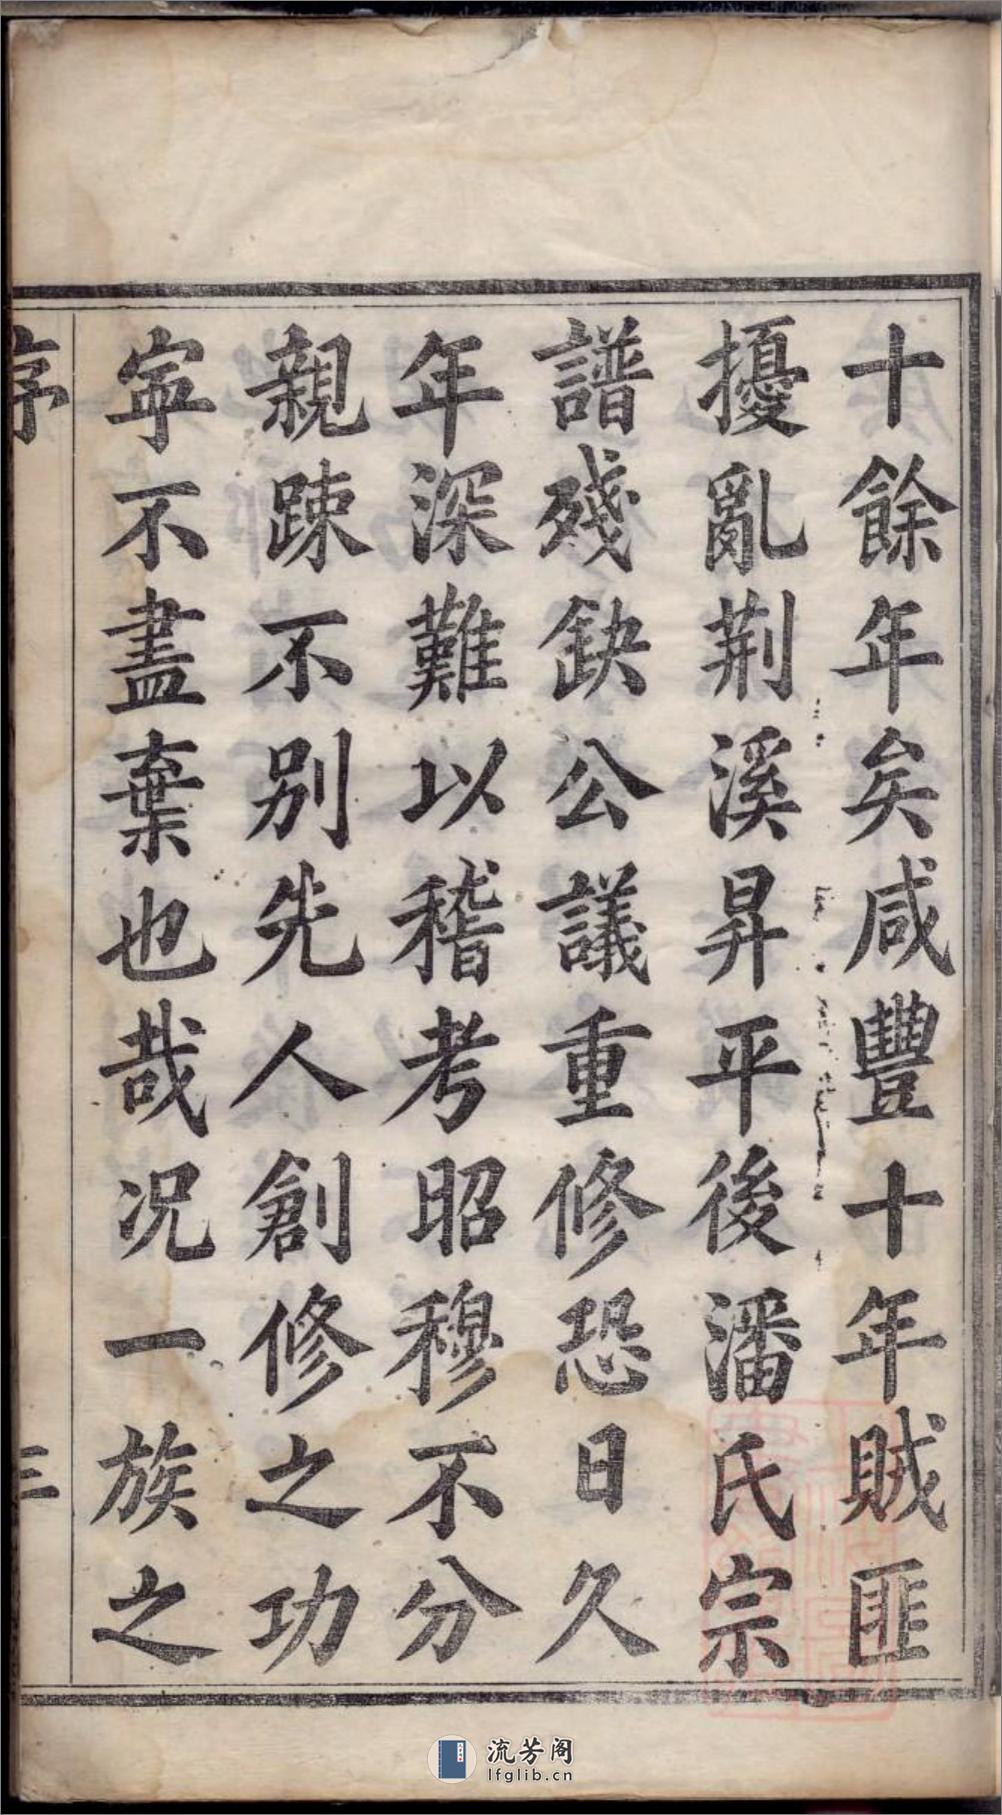 十餘年矣咸豐十年賊匪
擾亂荆溪昇平後潘氏宗
譜殘缺公議重修恐日久
年深難以稽考昭穆不分
親踈不別先人創修之功
寜不盡棄也哉况一族之
序
三
流芳阁
lfglib.cn